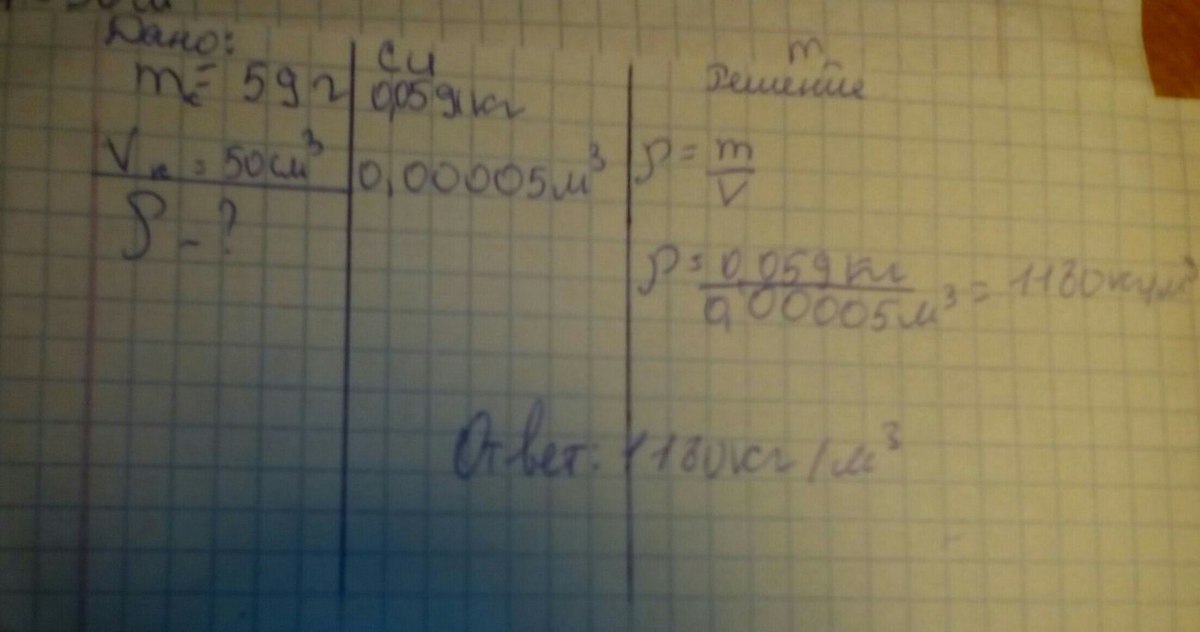 Дано:
m = 59 г
V = 50 см³
ρ - ?
СИ
0,059 кг
0,00005 м³
m
Решение
ρ = m/V
ρ = 0,059 кг / 0,00005 м³ = 1180 кг/м³
Ответ: 1180 кг/м³